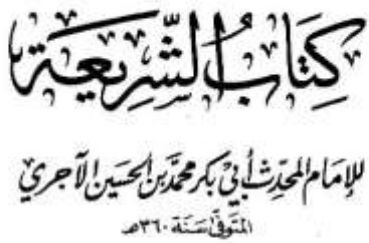 كِتَابُ الشَّرِيعَة
للإمَام المحَدِّث أَبِي بَكر محمَّد بن الحسَين الآجري
المتَوفّى سَنَة ٣٦٠هـ